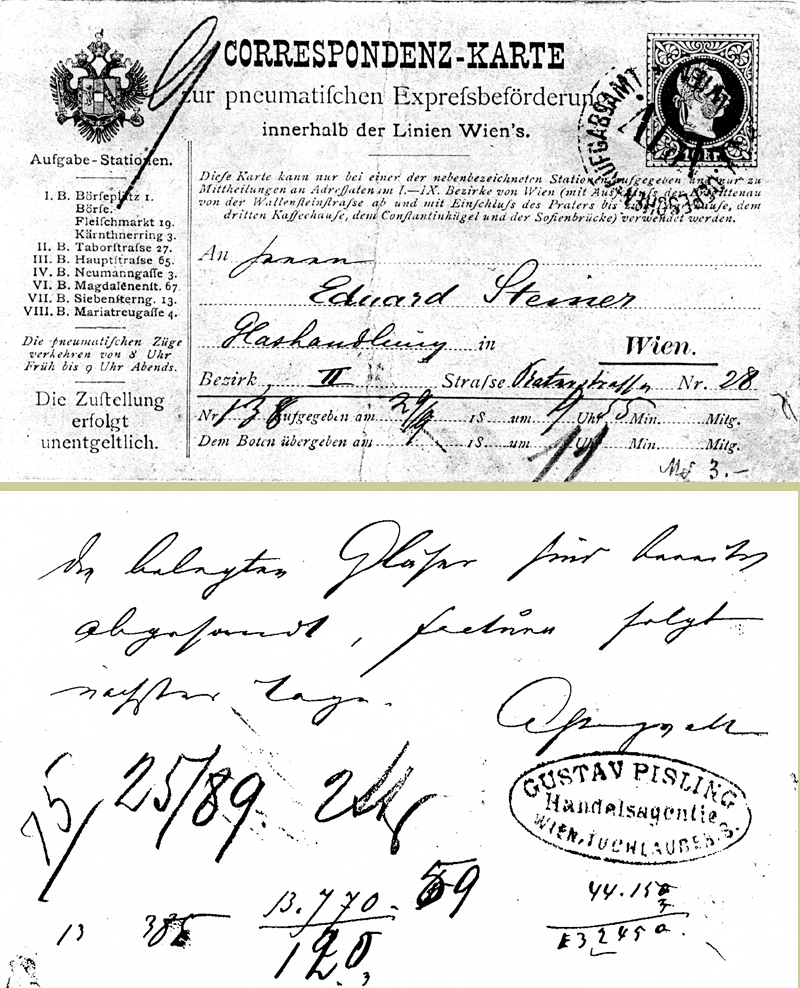 CORRESPONDENZ-KARTE
zur pneumatiſchen Expreſsbeförderung
innerhalb der Linien Wien's.
Aufgabe-Stationen.
I. B. Börſeplatz 1.
Börſe.
Fleiſchmarkt 19.
Kärnthnerring 3.
II. B. Taborſtraſse 27.
III. B. Hauptſtraſse 65.
IV. B. Neumanngaſſe 3.
VI. B. Magdalenenſt. 67.
VII. B. Siebenſterng. 13.
VIII. B. Mariatreugaſſe 4.
Die pneumatiſchen Züge
verkehren von 8 Uhr
Früh bis 9 Uhr Abends.
Die Zuſtellung
erfolgt
unentgeltlich.
Dieſe Karte kann nur bei einer der nebenbezeichneten Stationen aufgegeben und nur zu
Mittheilungen an Adreſſaten im I.—IX. Bezirke von Wien (mit Ausſchluſs der Brigittenau
von der Wallenſteinſtraſse ab und mit Einſchluſs des Praters bis zum
dritten Kaffeehauſe, dem Conſtantinhügel und der Sofienbrücke) verwendet werden.
An Herrn
Eduard Steiner
Glashandlung in Wien.
Bezirk II Straſse Praterstrasse Nr. 28
Nr. 138 Aufgegeben am 29/9 18 um 9 Uhr 55 Min. Mitg.
Dem Boten übergeben am 18 um Uhr Min. Mitg.
3.-
Die belegten Gläser sind bereits
abgesandt, factura folgt
nächster Tage.
GUSTAV PISLING
Handelsagentie
WIEN, TUCHLAUBEN 8.
25/89.
13.770
59
13
120
44.150